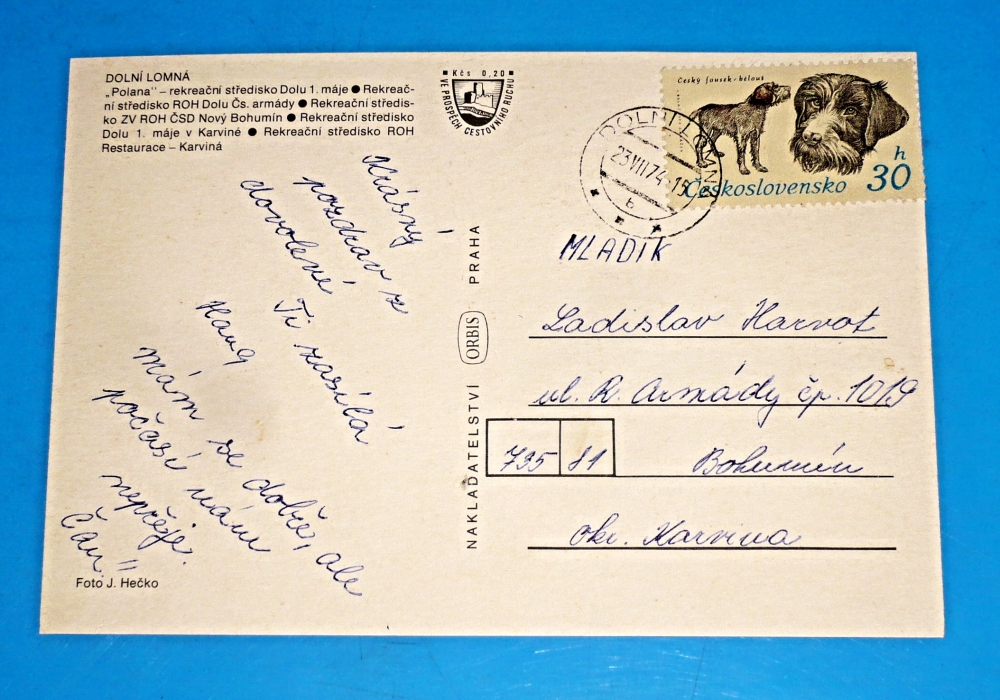 DOLNÍ LOMNÁ
„Polana" – rekreační středisko Dolu 1. máje ● Rekreač-
ní středisko ROH Dolu Čs. armády ● Rekreační středis-
ko ZV ROH ČSD Nový Bohumín ● Rekreační středisko
Dolu 1. máje v Karviné ● Rekreační středisko ROH
Restaurace – Karviná
Kčs 0,20
VE PROSPĚCH CESTOVNÍHO RUCHU
Krásný
pozdrav z
dovolené
Ti zasílá
Mám se dobře, ale
počasí nám
nepřeje.
Foto J. Hečko
NAKLADATELSTVÍ ORBIS PRAHA
Český fousek-bělouš
Československo 30 h
DOLNÍ LOMNÁ
23.VII.74-15
b
MLADÍK
Ladislav Harvot
ul. R. Armády čp. 1019
795 81 Bohumín
okr. Karvina